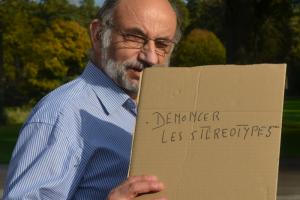 . DENONCER
LES STEREOTYPES